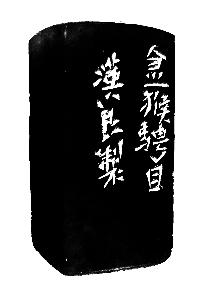 金猴騁目
漢良製